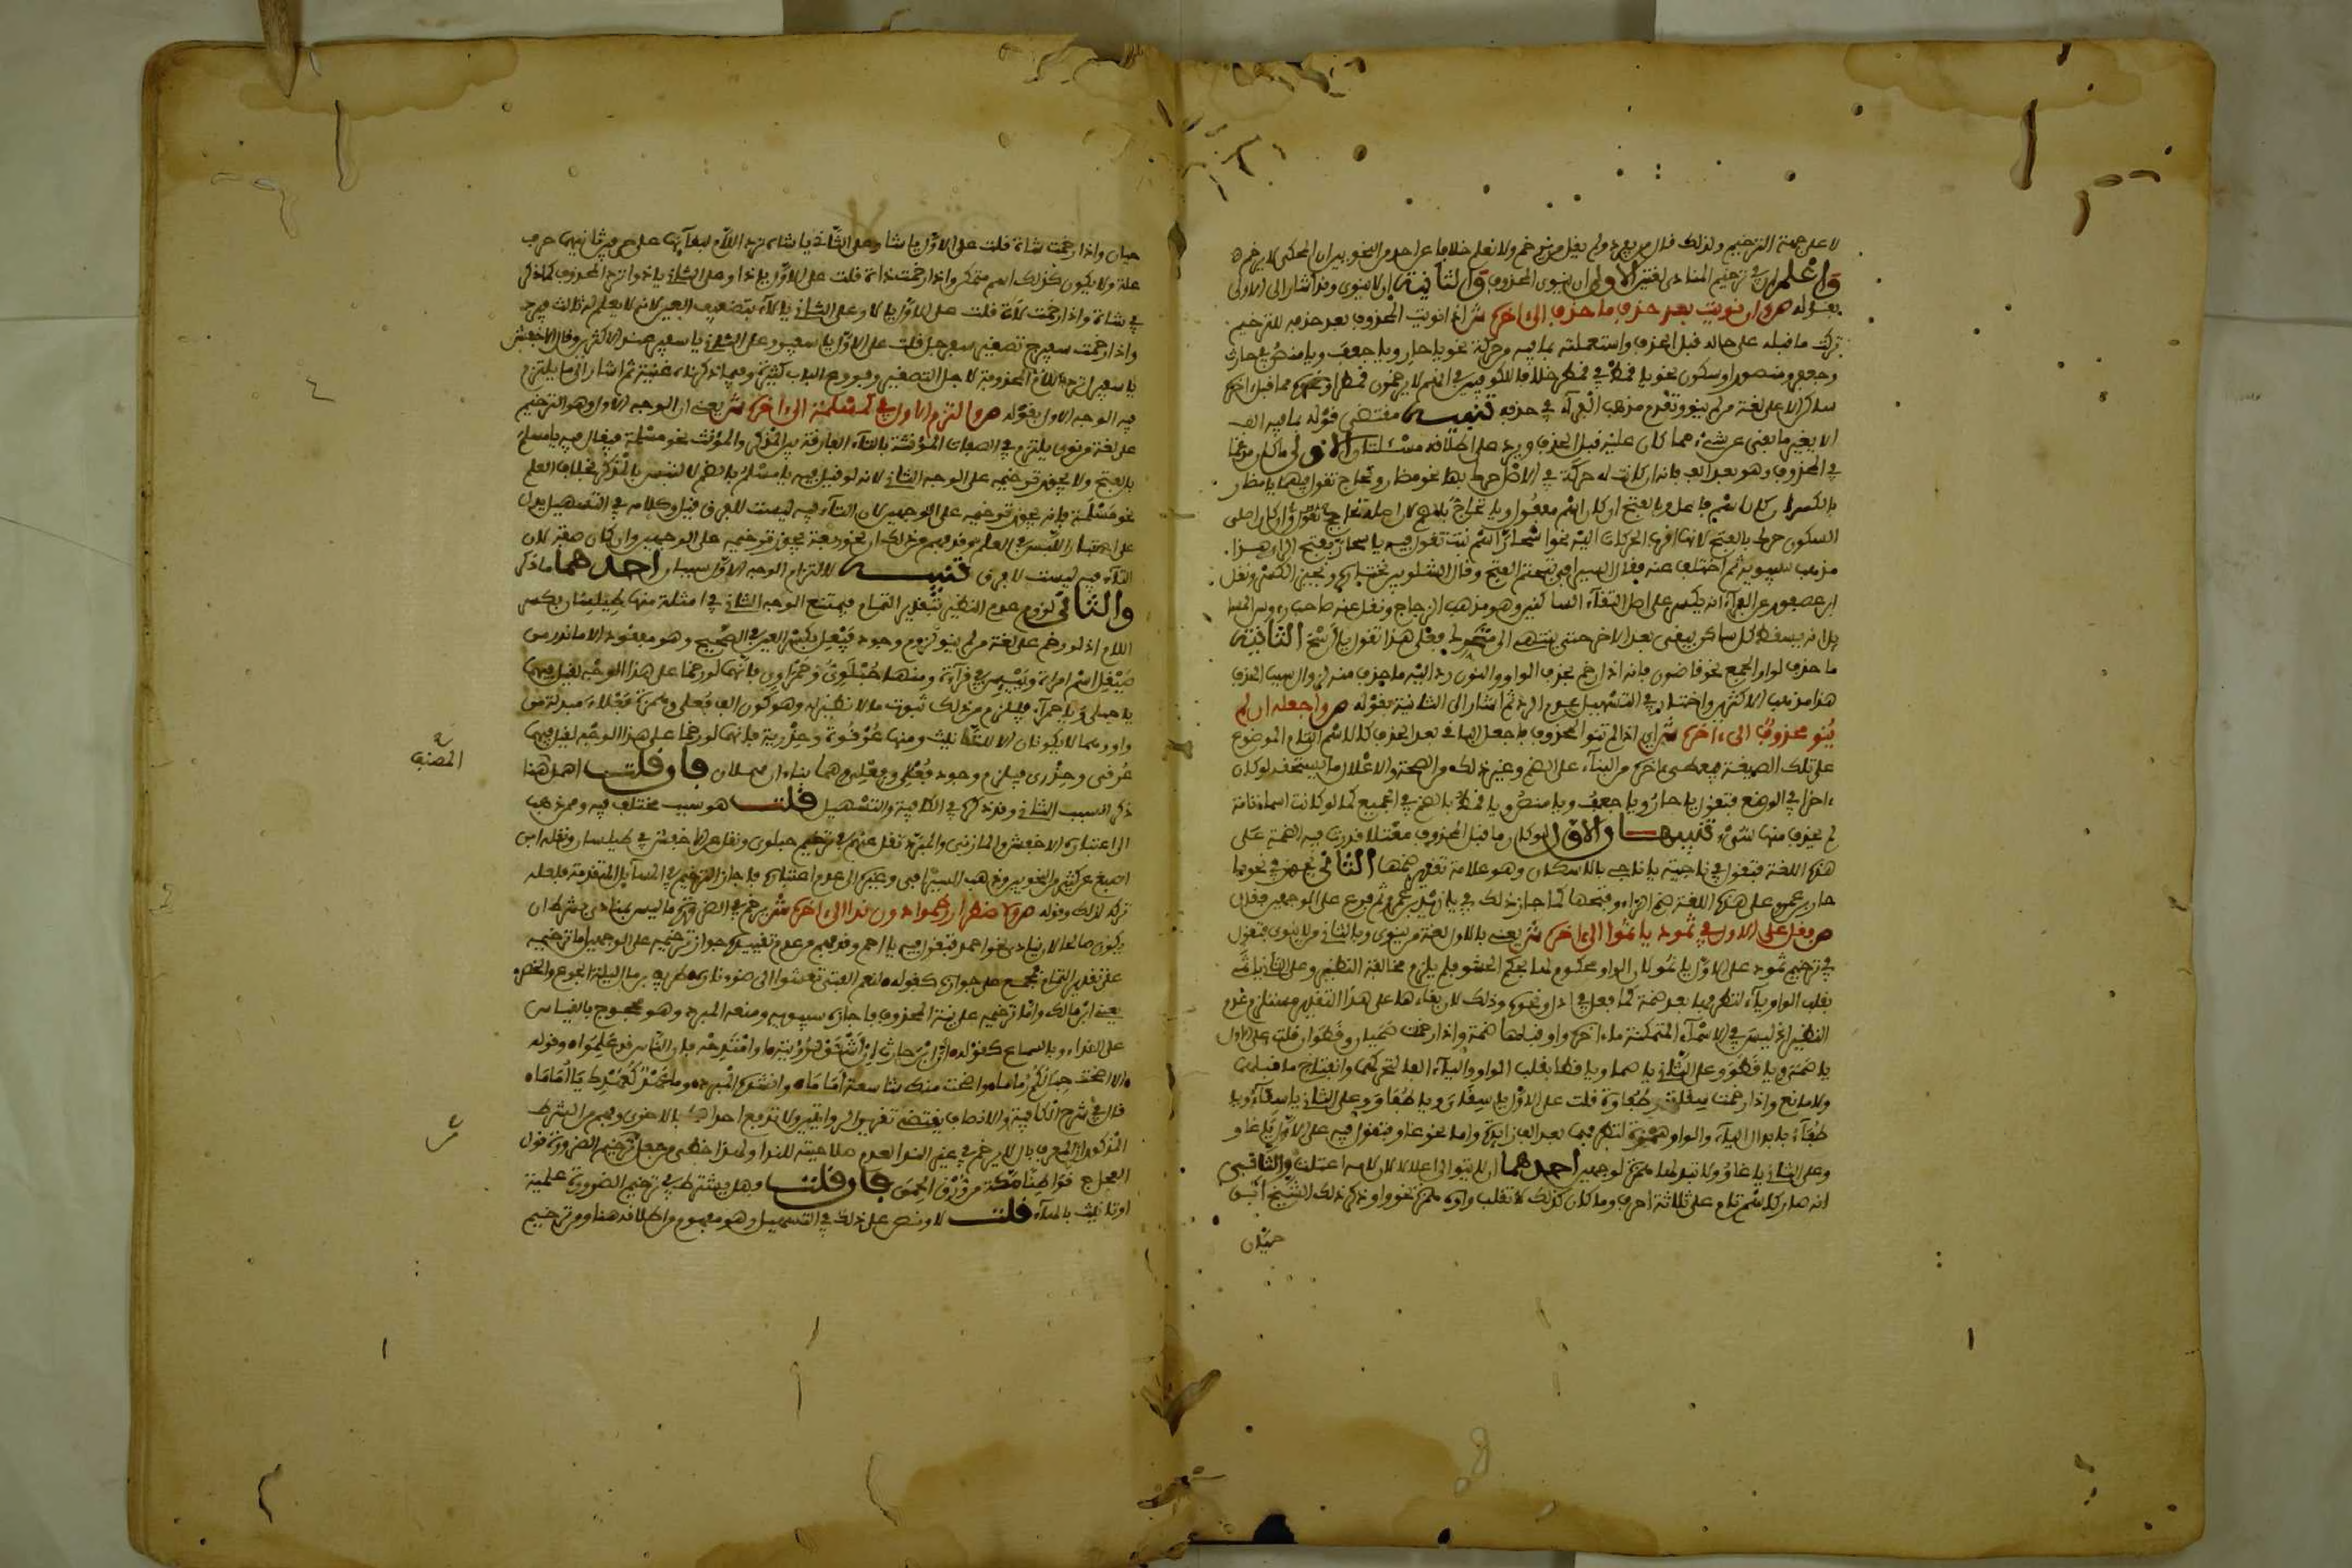 لا على جهة الترخيم ولذلك قال من يعد ولم يقل من رخم ولا نعلم خلافا عن احد من النحويين ان المحكى لا يرخم
واعلم ان في ترخيم المنادى لغتين الاولى ان ينوى المحذوف والثانية ان لا ينوى وقد اشار الى الاولى
بقوله ص وان نويت بعد حذف ما حذف الى ءاخره ش اذا نويت المحذوف بعد حذفه للترخيم
ترك ما قبله على حاله قبل الحذف واستعملته بما فيه من حركة نحو يا حار ويا جعف ويا منص في حارث
وجعفر ومنصور او سكون نحو يا قمط في قمطر خلافا للكوفيين في انهم لا يرخمون قمطرا ونحوه مما قبل ءاخره
ساكن الا على لغة من لم ينو وتقدم مذهب الفراء في حذفه تنبيه مقتضى قوله بما فيه الف
الا يغير ما بقى عن شىء مما كان عليه قبل الحذف ويرد على اطلاقه مسئلتان الاولى ما كان مدغما
في المحذوف وهو بعد الف فانه ان كانت له حركة في الاصل حرك بها نحو مضار ومحاج تقول فيهما يا مضار
بالكسر ان كان اسم فاعل وبالفتح ان كان اسم مفعول ويا تحاج بالضم لان اصله تحاجج تقول وان كان اصلى
السكون حرك بالفتح لانها اقرب الحركات اليه نحو اسحار اسم نبت تقول فيه يا اسحار بفتح الراء هذا
مذهب سيبويه ثم اختلف عنه فقال السيرافي يتحتم الفتح وقال الشلوبين يختاره ويجيز الكسر ونقل
ابن عصفور عن الفراء انه يكسر على اصل التقاء الساكنين وهو مذهب الزجاج ونقل عنه صاحب رءوس المسا
يل انه يسقط كل ساكن يبقى بعد الاخر حتى ينتهى الى متحرك فعلى هذا تقول يا اسح الثانية
ما حذف لواو الجمع نحو قاضون فانه اذا رخم بحذف الواو والنون رد اليه ما حذف منه لزوال سبب الحذف
هذا مذهب الاكثر واختار في التسهيل عدم الرد ثم اشار الى الثانية بقوله ص واجعله ان لم
ينو محذوف الى ءاخره ش اى اذا لم تنو المحذوف فاجعل الباقى بعد الحذف كالاسم التام الموضوع
على تلك الصيغة فيعطى ءاخره من البناء على الضم وغير ذلك من الصحة والاعلال ما يستحقه لو كان
ءاخرا في الوضع فتقول يا حار ويا جعف ويا منص ويا قمط بالضم في الجميع كما لو كانت اسماء تامة
لم يحذف منها شىء تنبيهان الاول لو كان ما قبل المحذوف معتلا قدرت فيه الضمة على
هذه اللغة فتقول في ناجية يا ناجى بالاسكان وهو علامة تقدير ضمها الثانى يجوز في نحو يا
حار بن عمرو على هذه اللغة ضم الراء وفتحها كما جاز ذلك في يا زيد بن عمرو ثم فرع على الوجهين فقال
ص فقل على الاول في ثمود يا ثمو الى ءاخره ش يعنى بالاول لغة من ينوى وبالثانى من لا ينوى فتقول
في ترخيم ثمود على الاول يا ثمو لان الواو محكوم لها بحكم الحشو فلم يلزم مخالفة النظير وعلى الثانى يا ثمى
بقلب الواو ياء لتطرفها بعد ضمة كما فعل في ادل ونحوه وذلك لان بقاءها على هذا التقدير مستلزم عدم
النظير اذ ليس في الاسماء المتمكنة ما ءاخره واو قبلها ضمة واذا رخمت صميان وقطوان قلت على الاول
يا صمى ويا قطو وعلى الثانى يا صما ويا قطا بقلب الواو والياء الفا لتحركهما وانفتاح ما قبلهما
ولا مانع واذا رخمت سقاية وطفاوة قلت على الاول يا سقاى ويا طفاو وعلى الثانى يا سقاء ويا
طفاء بابدال الياء والواو همزة لتطرفهما بعد الف زايدة واما نحو غاو فتقول فيه على الاول يا غاو
وعلى الثانى يا غاو ولا تبدلها همزة لوجهين احدهما ان لا يتوالى اعلالان لان لامه اعتلت والثانى
انه صار كاسم تام على ثلاثة احرف وما كان كذلك لا تقلب واوه همزة نحو واو ذكر ذلك الشيخ ابو
حيان
حيان واذا رخمت شاة قلت على الاول يا شا وعلى الثانى يا شاه برد اللام لبقائها على حرفين ثانيهما حرف
علة ولا يكون كذلك اسم متمكن واذا رخمت ذات قلت على الاول يا ذا وعلى الثانى يا ذوا برد المحذوف كما ذكر
في شاة واذا رخمت لات قلت على الاول يا لا وعلى الثانى يا لاء بتضعيف الالف لانه لا يعلم له ثالث فيرد
واذا رخمت سفيرج تصغير سفرجل قلت على الاول يا سفير وعلى الثانى يا سفير عند الاكثر وقال الاخفش
يا سفيرل برد اللام المحذوفة لاجل التصغير وفروع الباب كثيرة وفيما ذكرناه غنية ثم اشار الى ما يلتزم
فيه الوجه الاول بقوله ص والتزم الاول في كمسلمة الى ءاخره ش يعنى ان الوجه الاول وهو الترخيم
على لغة من نوى يلتزم في الصفات المؤنثة بالتاء الفارقة بين المذكر والمؤنث نحو مسلمة فيقال فيه يا مسلم
بالفتح ولا يجوز ترخيمه على الوجه الثانى لانه لو قيل فيه يا مسلم بالضم لالتبس بالمذكر بخلاف العلم
نحو مسلمة فانه يجوز ترخيمه على الوجهين لان التاء فيه ليست للفرق قيل وكلامه في التسهيل يدل
على اعتبار اللبس في العلم وقد فهم من ذلك ان نحو ربعة يجوز ترخيمه على الوجهين وان كان صفة لان
التاء فيه ليست للفرق تنبيه لالتزام الوجه الاول سببان احدهما ما ذكر
والثانى لزوم عدم النظير بتقدير التمام فيمتنع الوجه الثانى في امثلة منها طيلسان بكسر
اللام اذ لو رخم على لغة من لم ينو لزم وجود فيعل بكسر العين في الصحيح وهو مفقود الا ما ندر من
صيقل اسم امراة وبيئس في قراءة ومنها حبلوى وحمراوى فانهما لو رخما على هذا الوجه لقيل فيهما
يا حبلى ويا حمراء فيلزم من ذلك ثبوت ما لا نظير له وهو كون الف فعلى وهمزة فعلاء مبدلة من
واو وهما لا يكونان الا للتانيث ومنها عرقوة وحذرية فانهما لو رخما على هذا الوجه لقيل فيهما
عرقى وحذرى فيلزم وجود فعلى وفعلى وهما بناءان مهملان فان قلت اهمل هنا
المصنف
ذكر السبب الثانى وقد ذكره في الكافية والتسهيل قلت هو سبب مختلف فيه وممن ذهب
الى اعتباره الاخفش والمازنى والمبرد نقل عنهم في ترخيم حبلوى ونقل عن الاخفش في طيلسان ونقله ابن
اصبغ عن كثير من النحويين وذهب السيرافى وغيره الى عدم اعتباره فاجاز الترخيم في المسائل المتقدمة فلعله
تركه لذلك وقوله ص ولاضطرار رخموا دون ندا الى ءاخره ش يرخم في الضرورة ما ليس بمنادى بشرط ان
يكون صالحا لان ينادى نحو احمد فتقول فيه يا احم وقد فهم من عدم تقييده جواز ترخيمه على الوجهين اما ترخيمه
على تقدير التمام فمجمع على جوازه كقوله لنعم الفتى تعشوا الى ضوء ناره طريف بن مال ليلة الجوع والخصر
يعنى ابن مالك واما ترخيمه على نية المحذوف فاجازه سيبويه ومنعه المبرد وهو محجوج بالقياس
على النداء وبالسماع كقوله ان ابن حارث ان اشتق لرؤيته او امتدحه فان الناس قد علموا وقوله
الا اضحت حبالكم رماما واضحت منك شاسعة اماما وانشده المبرد وما عهدى كعهدك يا اماما
قال في شرح الكافية والانصاف يقتضى تقرير الروايتين ولا تدفع احداهما بالاخرى وفهم من اشتراط
المذكور ان المعرف بال لا يرخم في غير الندا لعدم صلاحيته للندا ولهذا خطئ من جعل من ترخيم الضرورة قول
العجاج قواطنا مكة من ورق الحمى فان قلت وهل يشترط في ترخيم الضرورة علمية
او تانيث بالهاء قلت لا ونص على ذلك في التسهيل وهو مفهوم من اطلاقه هنا ومن ترخيم